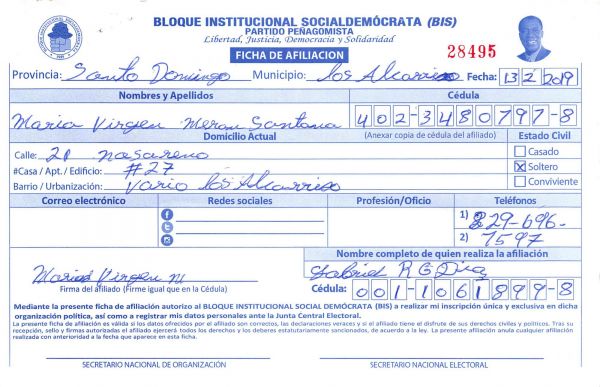 BLOQUE INSTITUCIONAL SOCIALDEMÓCRATA (BIS)
PARTIDO PEÑAGOMISTA
Libertad, Justicia, Democracia y Solidaridad
FICHA DE AFILIACION
28495
Provincia: Santo Domingo Municipio: los Alcarrizo Fecha: 13 2 2019
Nombres y Apellidos Cédula
Maria Virgen Meran Santana 402-3480797-8
Domicilio Actual (Anexar copia de cédula del afiliado) Estado Civil
Calle: 21 nasareno Casado
#Casa / Apt. / Edificio: #27 X Soltero
Barrio / Urbanización: Vario los Alcarrizo Conviviente
Correo electrónico Redes sociales Profesión/Oficio Teléfonos
1) 829-696-
2) 7597
Nombre completo de quien realiza la afiliación
Maria Virgen M Gabriel R G Diaz
Firma del afiliado (Firme igual que en la Cédula) Cédula: 001-1061899-8
Mediante la presente ficha de afiliación autorizo al BLOQUE INSTITUCIONAL SOCIAL DEMÓCRATA (BIS) a realizar mi inscripción única y exclusiva en dicha
organización política, así como a registrar mis datos personales ante la Junta Central Electoral.
La presente ficha de afiliación es válida si los datos ofrecidos por el afiliado son correctos, las declaraciones veraces y si el afiliado tiene el disfrute de sus derechos civiles y políticos. Tras su
recepción, sello y firmas autorizadas el afiliado ejercerá todos los derechos y los deberes estatutariamente sancionados, de acuerdo a la ley. La presente afiliación anula cualquier afiliación
realizada con anterioridad a la fecha que aparece en esta ficha.
SECRETARIO NACIONAL DE ORGANIZACIÓN SECRETARIO NACIONAL ELECTORAL